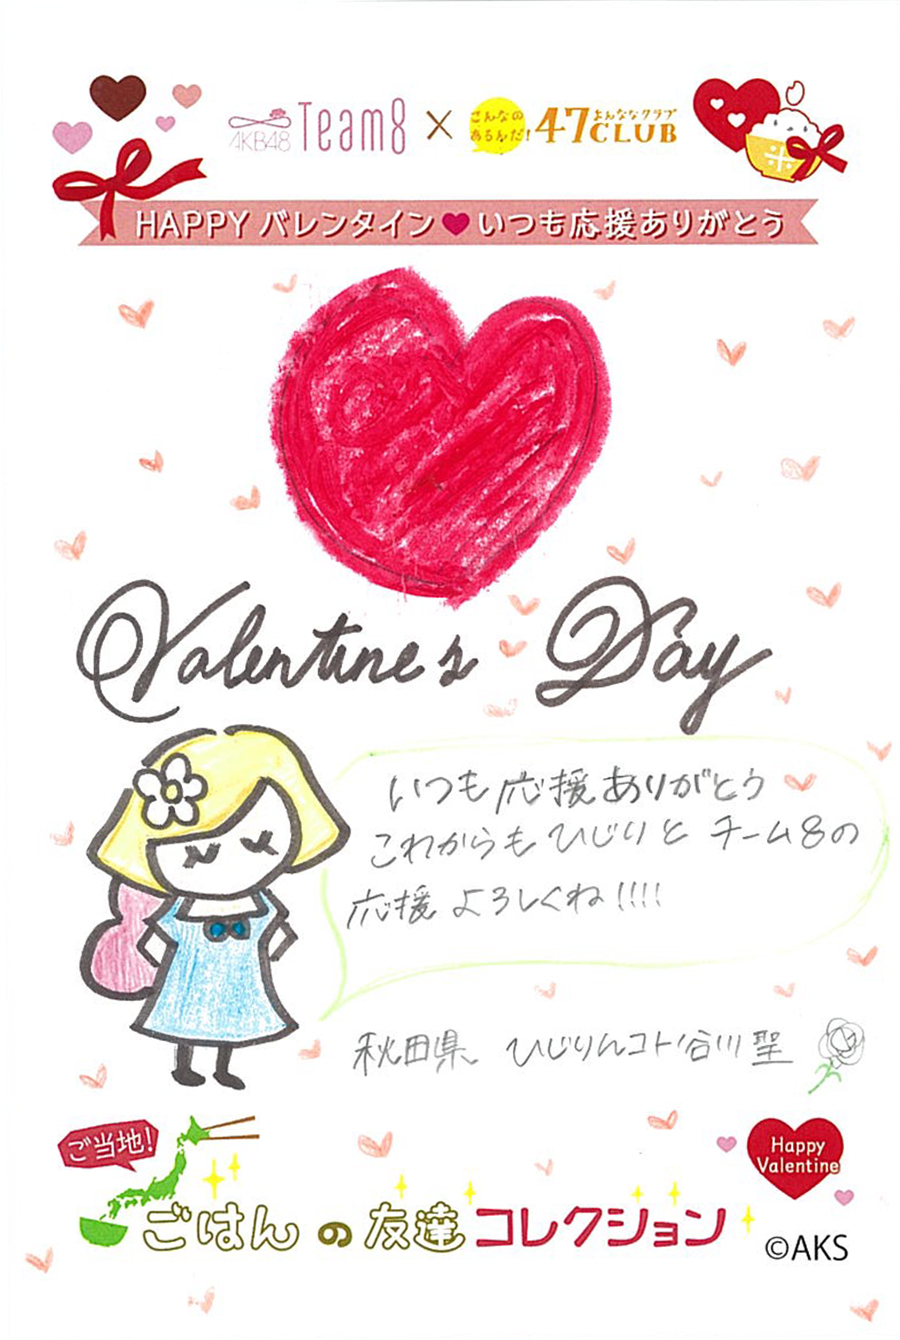 AKB48 Team8 × こんなの あるんだ! 47 よんななクラブ CLUB
HAPPY バレンタイン♥いつも応援ありがとう
Valentine's Day
いつも応援ありがとう
これからもひじりと チーム8の
応援 よろしくね!!!!
秋田県 ひじりんコト谷川聖
ご当地!
ごはんの友達コレクション
Happy
Valentine
©AKS